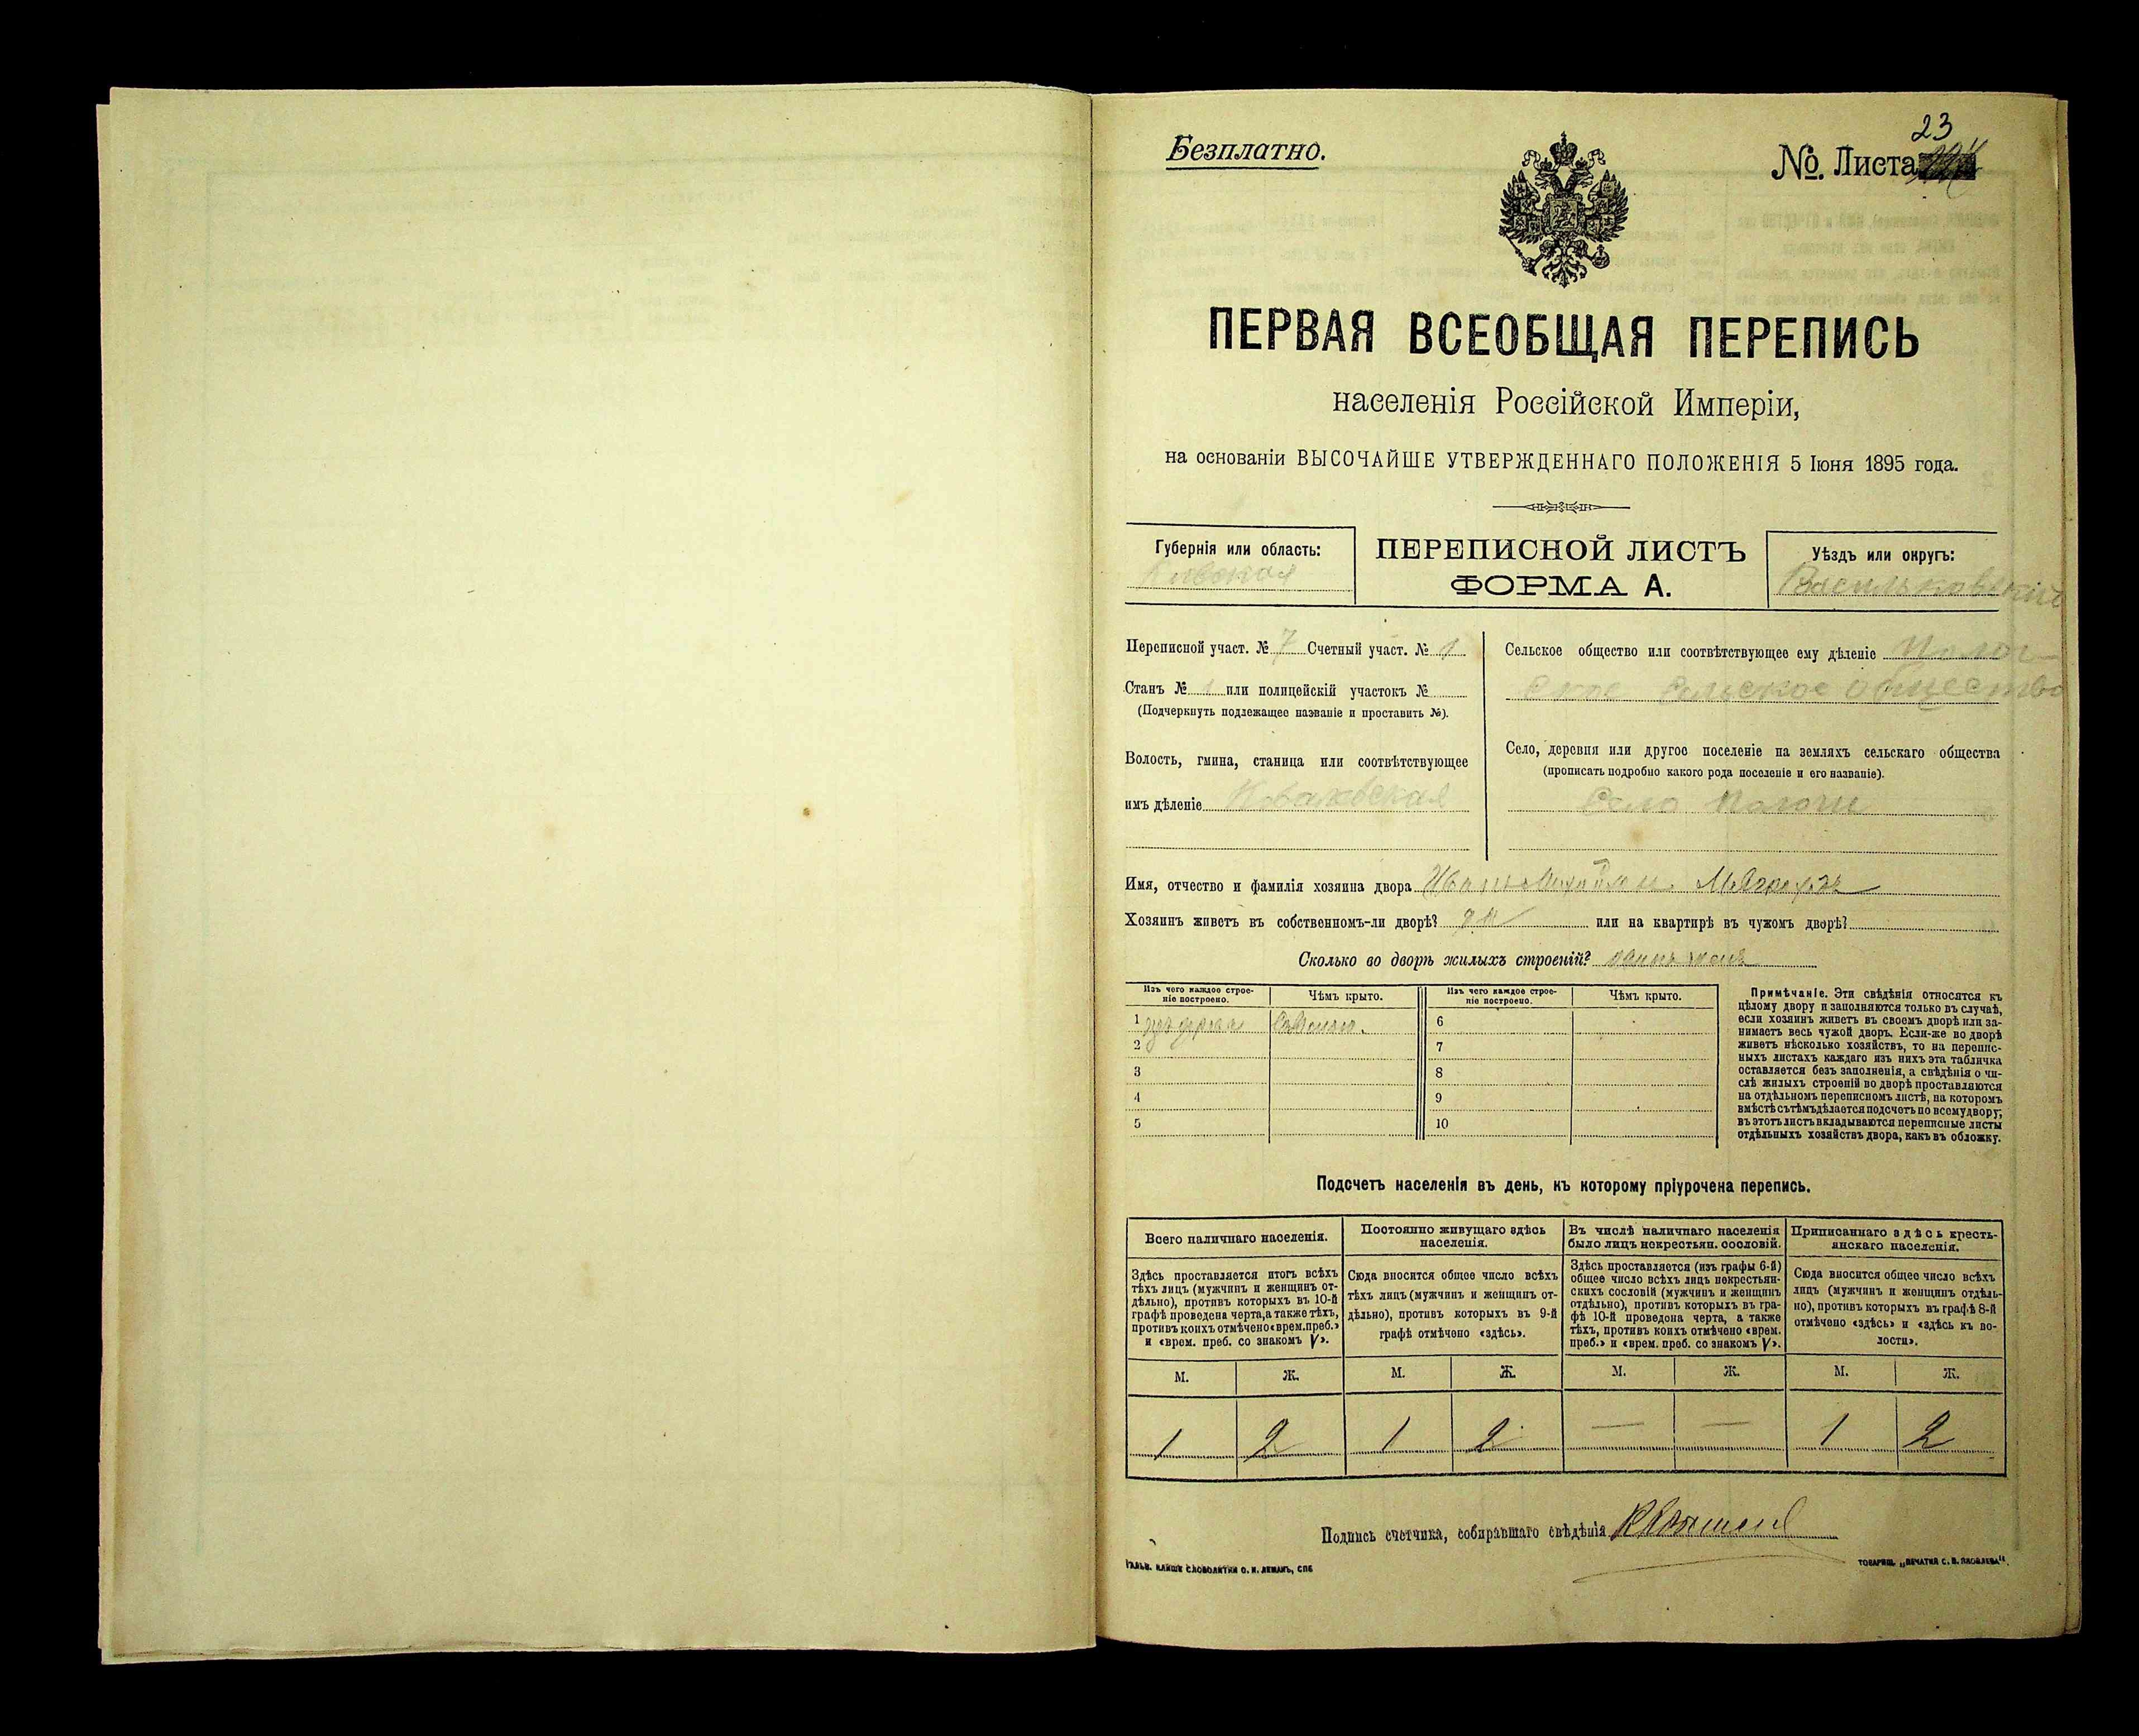 Безплатно.
23
№. Листа
ПЕРВАЯ ВСЕОБЩАЯ ПЕРЕПИСЬ
населенія Россійской Имперіи,
на основаніи ВЫСОЧАЙШЕ УТВЕРЖДЕННАГО ПОЛОЖЕНІЯ 5 Іюня 1895 года.
Губернія или область:
Кіевская
ПЕРЕПИСНОЙ ЛИСТЪ
ФОРМА А.
Уѣздъ или округъ:
Васильковскій
Переписной участ. № 7 Счетный участ. № 1
Станъ № 1 или полицейскій участокъ №
(Подчеркнуть подлежащее названіе и проставить №).
Волость, гмина, станица или соотвѣтствующее
имъ дѣленіе Ковалевская
Сельское общество или соотвѣтствующее ему дѣленіе
ское Сельское общество
Село, деревня или другое поселеніе на земляхъ сельскаго общества
(прописать подробно какого рода поселеніе и его названіе).
Село
Имя, отчество и фамилія хозяина двора Иванъ
Хозяинъ живетъ въ собственномъ-ли дворѣ? да или на квартирѣ въ чужомъ дворѣ?
Сколько во дворѣ жилыхъ строеній?
Изъ чего каждое строе-
ніе построено.
Чѣмъ крыто.
Изъ чего каждое строе-
ніе построено.
Чѣмъ крыто.
1 изъ дерева Соломою. 6
2 7
3 8
4 9
5 10
Примѣчаніе. Эти свѣдѣнія относятся къ
цѣлому двору и заполняются только въ случаѣ,
если хозяинъ живетъ въ своемъ дворѣ или за-
нимаетъ весь чужой дворъ. Если-же во дворѣ
живетъ нѣсколько хозяйствъ, то на перепис-
ныхъ листахъ каждаго изъ нихъ эта табличка
оставляется безъ заполненія, а свѣдѣнія о чи-
слѣ жилыхъ строеній во дворѣ проставляются
на отдѣльномъ переписномъ листѣ, на которомъ
вмѣстѣ съ тѣмъ дѣлается подсчетъ по всему двору;
въ этотъ листъ вкладываются переписные листы
отдѣльныхъ хозяйствъ двора, какъ въ обложку.
Подсчетъ населенія въ день, къ которому пріурочена перепись.
Всего наличнаго населенія.
Здѣсь проставляется итогъ всѣхъ
тѣхъ лицъ (мужчинъ и женщинъ от-
дѣльно), противъ которыхъ въ 10-й
графѣ проведена черта, а также тѣхъ,
противъ коихъ отмѣчено «врем. преб.»
и «врем. преб. со знакомъ V».
Постоянно живущаго здѣсь
населенія.
Сюда вносится общее число всѣхъ
тѣхъ лицъ (мужчинъ и женщинъ от-
дѣльно), противъ которыхъ въ 9-й
графѣ отмѣчено «здѣсь».
Въ числѣ наличнаго населенія
было лицъ некрестьян. сословій.
Здѣсь проставляется (изъ графы 6-й)
общее число всѣхъ лицъ некрестьян-
скихъ сословій (мужчинъ и женщинъ
отдѣльно), противъ которыхъ въ гра-
фѣ 10-й проведена черта, а также
тѣхъ, противъ коихъ отмѣчено «врем.
преб.» и «врем. преб. со знакомъ V».
Приписаннаго здѣсь кресть-
янскаго населенія.
Сюда вносится общее число всѣхъ
лицъ (мужчинъ и женщинъ отдѣль-
но), противъ которыхъ въ графѣ 8-й
отмѣчено «здѣсь» и «здѣсь къ во-
лости».
М. Ж. М. Ж. М. Ж. М. Ж.
1 2 1 2 — — 1 2
Подпись счетчика, собиравшаго свѣдѣнія
ГАЛЬВ. КЛИШЕ СЛОВОЛИТНИ О. И. ЛЕМАНЪ, СПБ
ТОВАРИЩ. „ПЕЧАТНЯ С. П. ЯКОВЛЕВА".